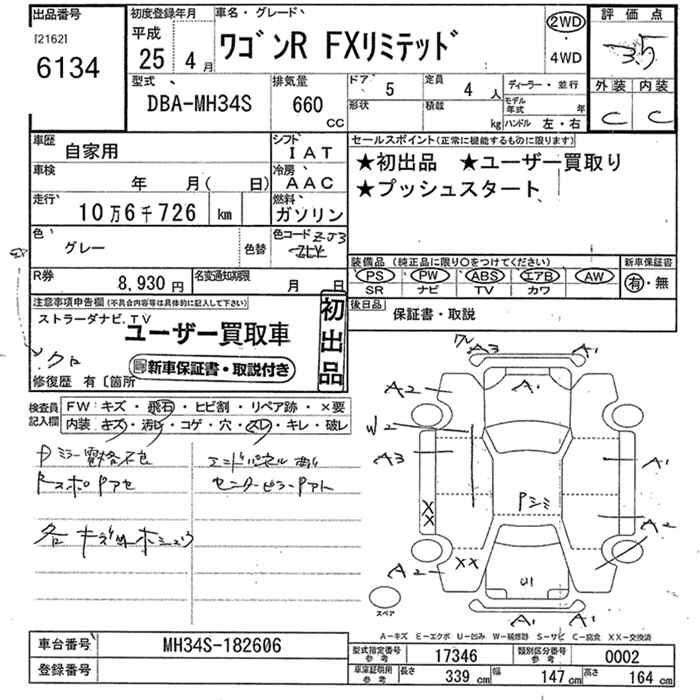 出品番号 初度登録年月 車名・グレード 評価点
[2162] 6134
平成 25 4月 ワゴンR FXリミテッド 2WD・4WD 3.5
型式 排気量 ドア 5 定員 4人 ディーラー・並行 外装 内装
DBA-MH34S 660 CC 形状 積載 kg モデル年式 年 ハンドル 左・右 C C
車歴 自家用 シフト IAT セールスポイント(正常に機能するものに限ります)
車検 年 月( 日) 冷房 AAC ★初出品 ★ユーザー買取り
走行 10万6千726 km 燃料 ガソリン ★プッシュスタート
色 グレー 色替 色コード ZJ3
装備品(純正品に限り○をつけてください) 新車保証書
R券 8,930円 名変通知期限 月 日 PS PW ABS エアB AW 有・無
SR ナビ TV カワ
注意事項申告欄(不具合内容等は具体的に記入して下さい) 初出品 後日品 保証書・取説
ストラーダナビ.TV
ユーザー買取車
新車保証書・取説付き
修復歴 有〔箇所
検査員記入欄 FW:キズ・飛石・ヒビ割・リペア跡・×要
内装 キズ・汚レ・コゲ・穴・スレ・キレ・破レ
A3 A1
A2 A1
W2
A3 A1
XX Pシミ A2
XX
A2 U1
A1 A1
スペア
A-キズ E-エクボ U-凹み W-補修跡 S-サビ C-腐食 XX-交換済
車台番号 MH34S-182606 型式指定番号 参考 17346 類別区分番号 参考 0002
登録番号 車庫証明用 参考 長さ 339cm 幅 147cm 高さ 164cm